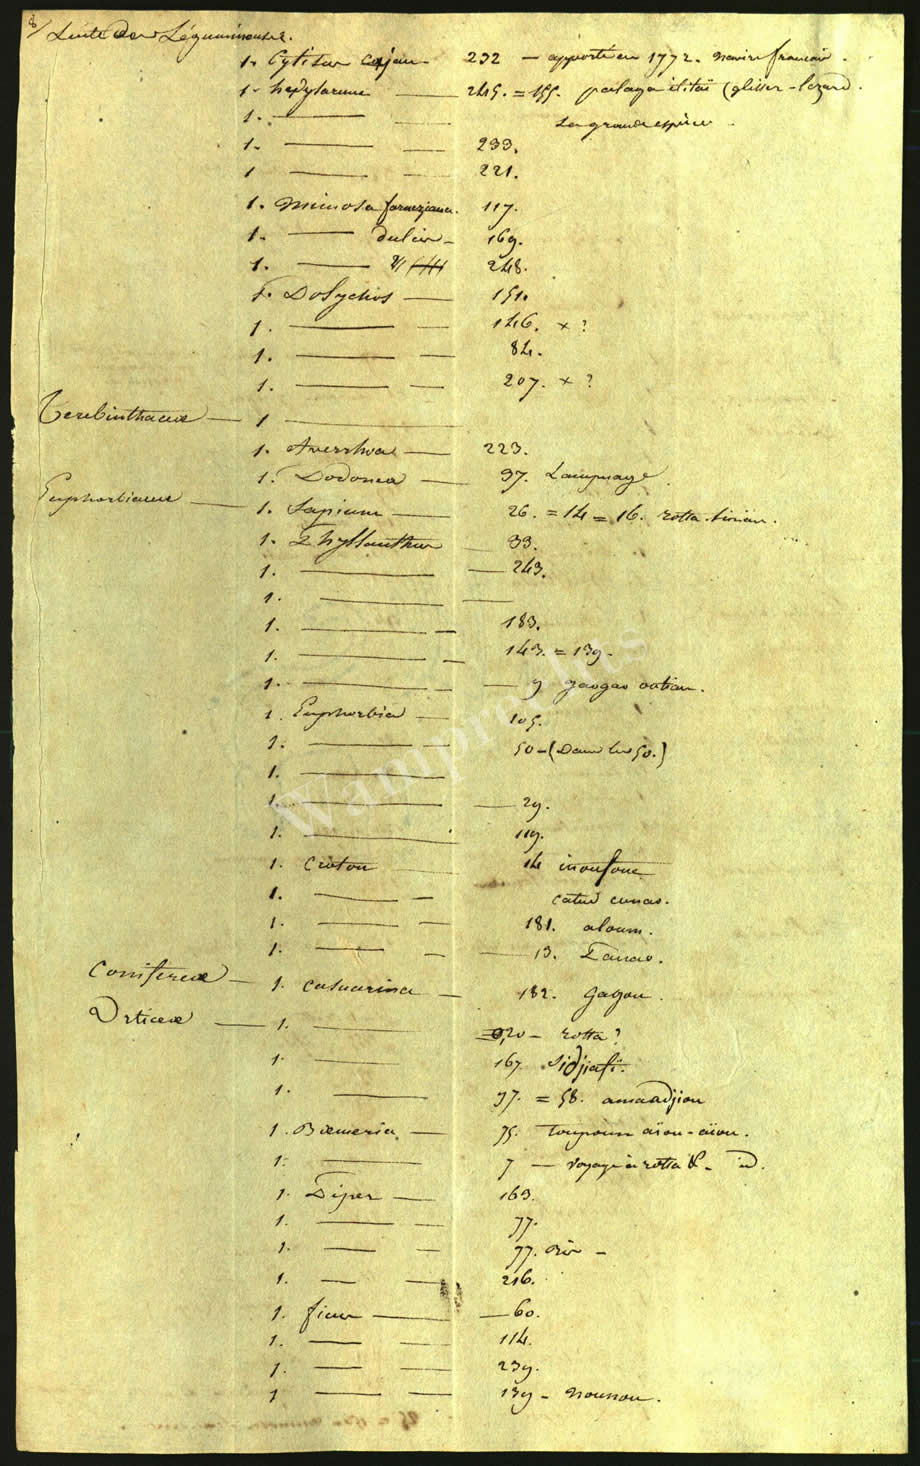 8/ Suite des Légumineuses.
1. Cytisus cajan - 232 - apporté en 1772. navire francais.
1. hedysarum — 245. = 155. palaga ilitaï (glisser-lezard.
1. — — La grande espèce
1. — — 233.
1 — — 221.
1. Mimosa farneziana. 117.
1. — dulcis - 169.
1. — 248.
1. Dolychos — 151.
1. — — 146. x ?
1. — — 84.
1. — — 207. x ?
Terebinthaceæ — 1 —
1. Averrhoa — 223.
1. Dodonea — 97. Lampuage.
Euphorbiaceæ — 1. Sapium — 26. = 14 = 16. rotta. tinian.
1. Phyllanthus — 33.
1. — — 243.
1. — —
1. — — 183.
1. — — 143. = 139.
1. — — 9 gaogao ootian.
1. Euphorbia — 105.
1. — — 50 - (Dans les 50.)
1. —
1. — — 29.
1. — 119.
1. Croton — 14
1. — — catud cunao.
1. — — 181. aloum.
1. — — 13. Tanao.
Coniferæ — 1. Casuarina — 182. gagou.
Urticeæ — 1. — 20 - rotta ?
1. — 167. Sidjiafi.
1. — 97. = 58. amaadjiou
1. Bœmeria — 75. toupoun aïou-aïou.
1. — 7 — voyage à rotta &. id.
1. Piper — 163.
1. — — 77.
1. — — 77. Bis -
1. — — 216.
1. ficus — 60.
1. — — 114.
1. — — 239.
1 — — 139 - nounou.
Wamprodas